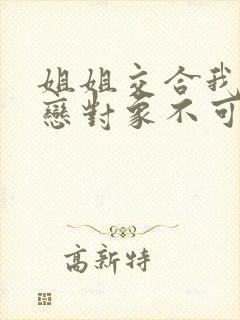 姐姐交合我
戀對象不可
高新特